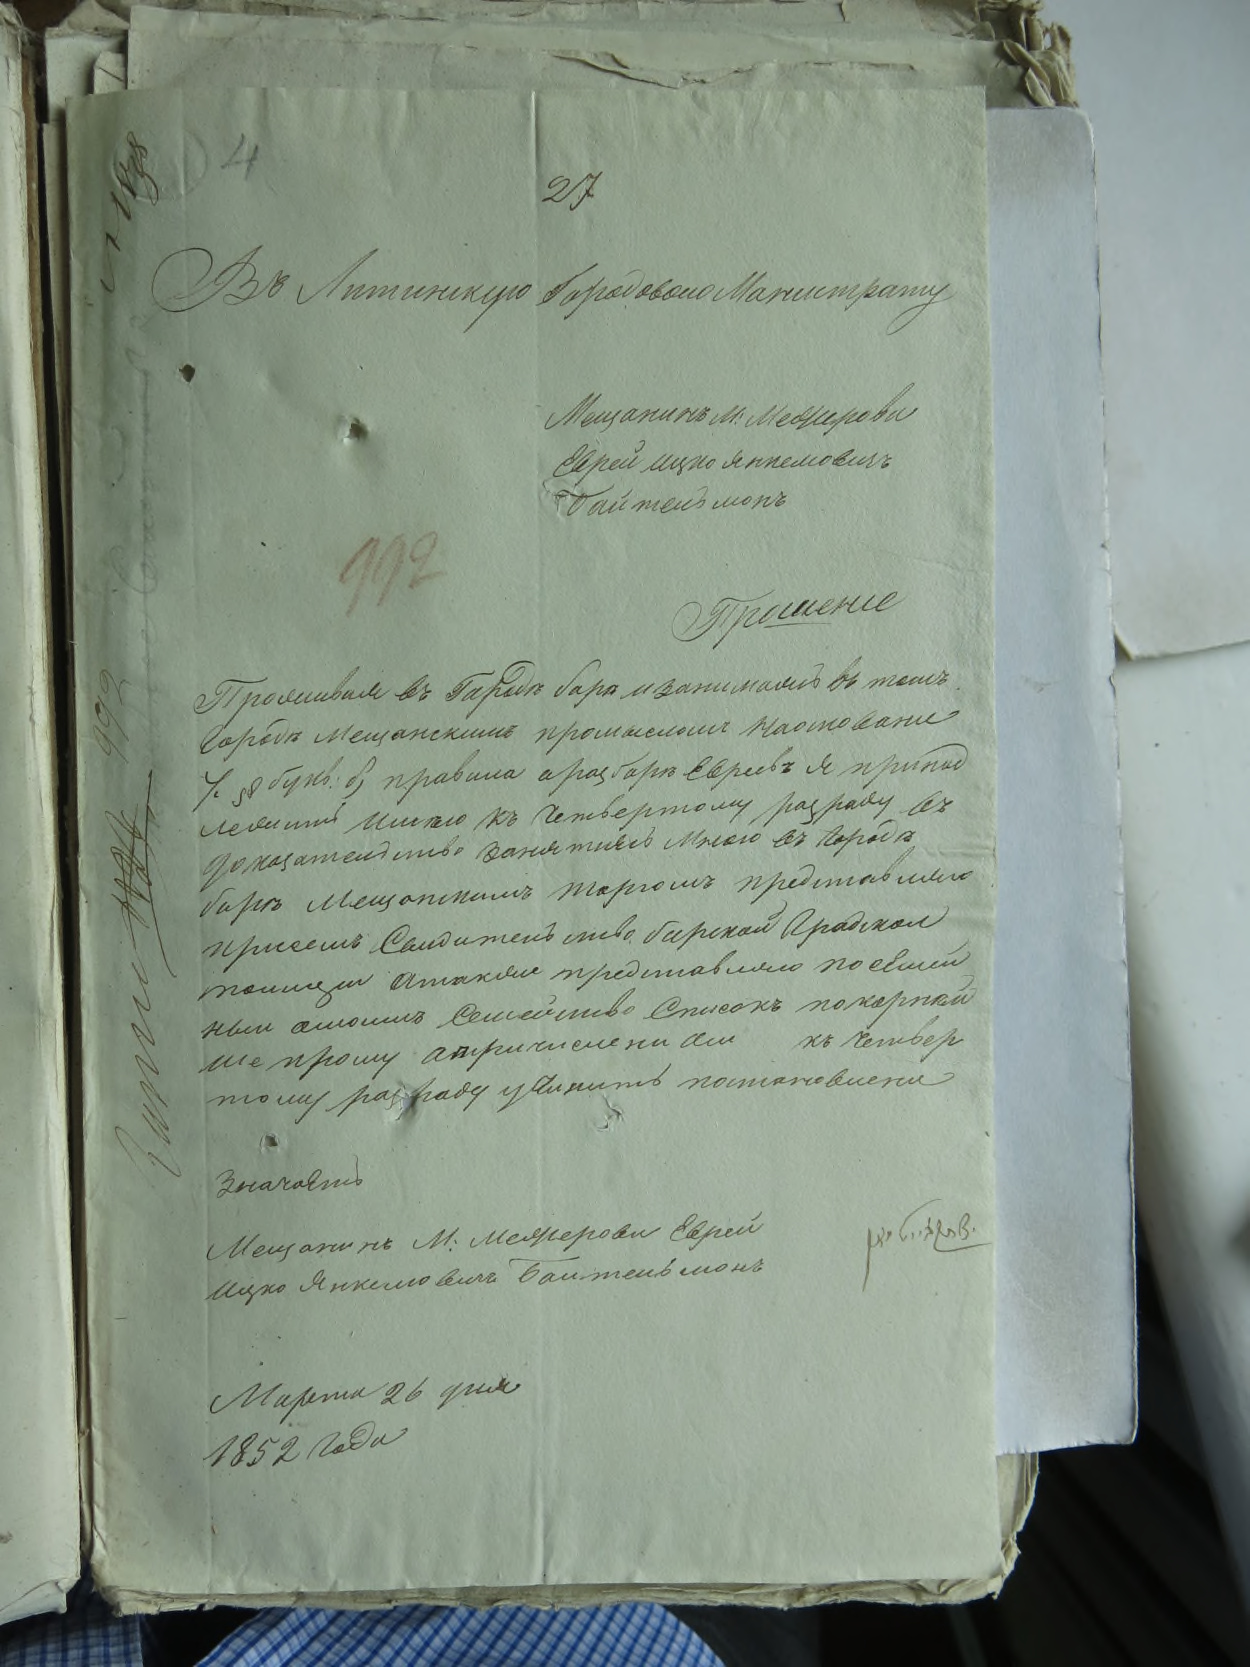 4
27
Въ Литинскую Городового Магистрату
Мещанинъ М: Межирова
Еврей Ицко Янкелювичъ
Байтельманъ
992
Прошение
Проживая въ Городѣ барѣ изанимаясь въ томъ
Городѣ Мещанскимъ промысломъ Наосновани
58 букв: б, правила оразборѣ Евреевъ я принад
лежать имѣю къ Четвертому разряду въ
доказательство занятиясь Мною въ Городѣ
барѣ Мещанскимъ торгомъ представляю
присемъ Свидительство барской Градской
полиции Атакже представляю посемей
ный омоимъ Семействѣ Списокъ покорнѣй
ше прошу опричислени къ Четвер
тому разряду учинить постановлени
Значаетъ
Мещанинъ М: Межерова Еврей
Ицко Янкелювичъ Байтельманъ
Марта 26 дня
1852 Года
992